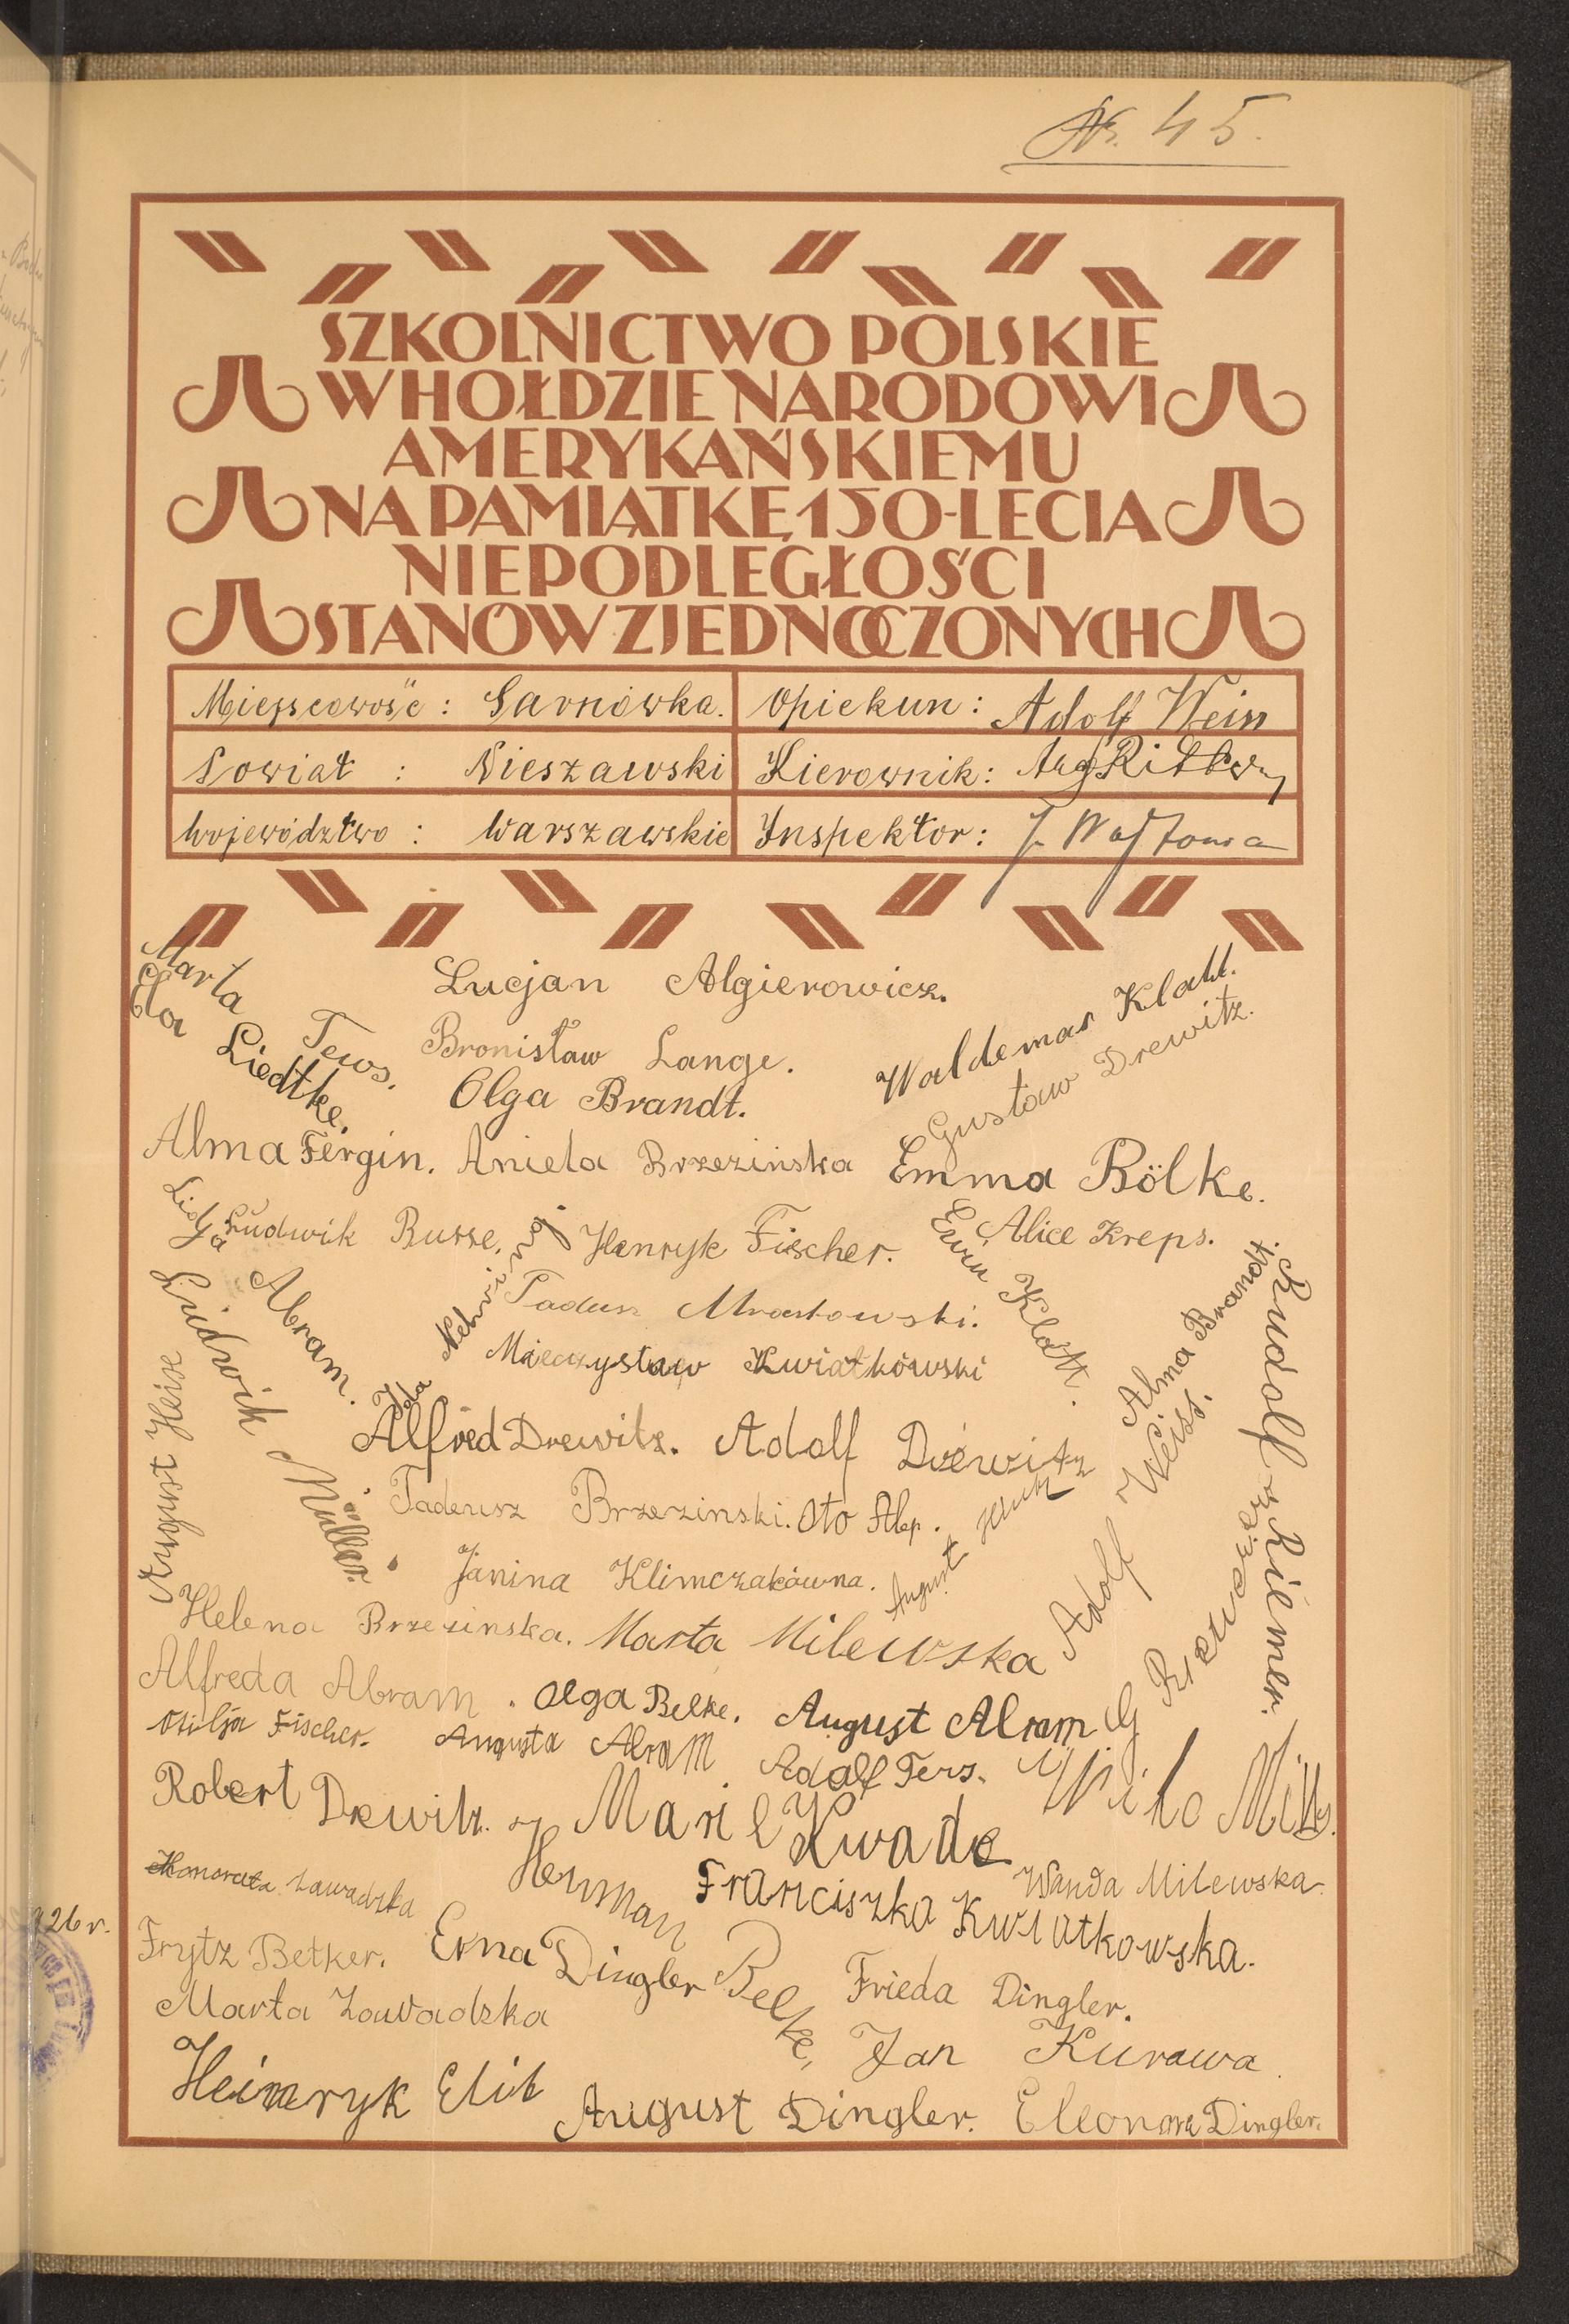 Nr. 45.
SZKOLNICTWO POLSKIE
W HOŁDZIE NARODOWI
AMERYKAŃSKIEMU
NA PAMIĄTKĘ 150-LECIA
NIEPODLEGŁOŚCI
STANÓW ZJEDNOCZONYCH
Miejscowość : Sarnówka.
Opiekun : Adolf Wein
Powiat : Nieszawski
Kierownik :
Województwo : Warszawskie
Inspektor : J.
Marta Tews.
Ela Liedtke.
Lucjan Algierowicz.
Bronisław Lange.
Olga Brandt.
Waldemar Klatt.
Gustaw Drewitz.
Alma Fergin. Aniela Brzezińska Emma Bölke.
Lidja Abram.
Ludwik Busse. Henryk Fischer. Alice Kreps.
Erwin Klatt.
Ida Nehring
Mrostowski.
Mieczysław Kwiatkowski
Ludwik Müller.
August Heise
Alma Brandt.
Rudolf Riemer.
Alfred Drewitz. Adolf Drewitz
Tadeusz Brzezinski. Oto Alep.
Adolf Weiss.
Janina Klimczakówna. August
Helena Brzezinska. Marta Milewska
Alfreda Abram. Olga Belke. August Abram
Otilja Fischer. Augusta Abram Adolf Ters.
Robert Drewitz. Kwade
Honorata Zawadzka
Herman Belke,
Franciszka Kwiatkowska.
Wanda Milewska
926 r.
Frytz Betker. Erna Dingler Frieda Dingler.
Marta Zawadzka
Jan Kurawa.
August Dingler. Eleonora Dingler.